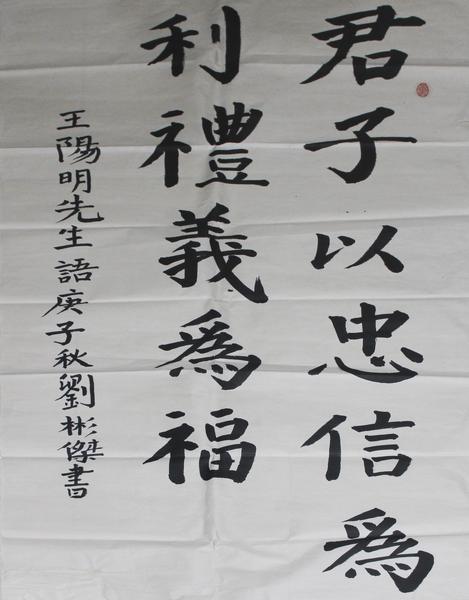 君子以忠信為
利禮義為福
王陽明先生語庚子秋劉彬傑書